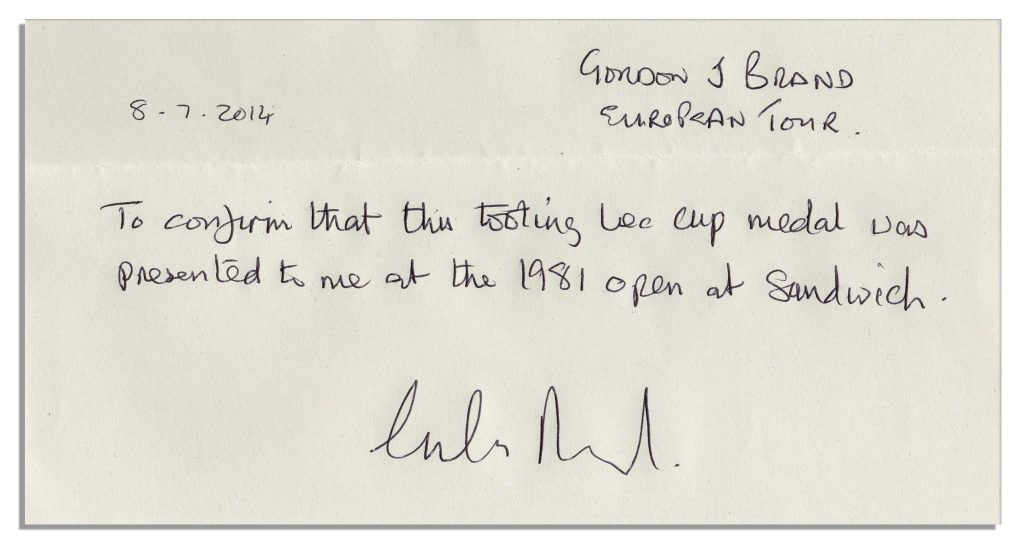 GORDON J BRAND
8 - 7 . 2014
EUROPEAN TOUR .
To confirm that this tooting bec cup medal was
presented to me at the 1981 open at Sandwich .